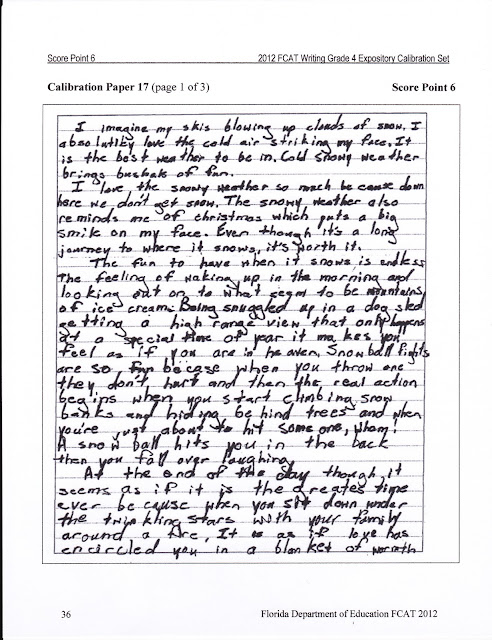 Score Point 6 2012 FCAT Writing Grade 4 Expository Calibration Set
Calibration Paper 17 (page 1 of 3) Score Point 6
I imagine my skis blowing up clouds of snow. I
absolutlky love the cold air striking my face. It
is the best weather to be in. Cold snowy weather
brings bushals of fun.
I love the snowy weather so much be cause down
here we don't get snow. The snowy weather also
reminds me of christmas which puts a big
smile on my face. Even though it's a long
journey to where it snows, it's worth it.
The fun to have when it snows is endless
The feeling of waking up in the morning and
looking out on to what seem to be mountains
of ice cream. Being snuggled up in a dog sled
getting a high range view that only happens
at a special time of year it makes you
feel as if you are in heaven. Snowball fights
are so fun becase when you throw one
they don't hurt and then the real action
begins when you start climbing snow
banks and hiding behind trees and when
you're just about to hit someone, wham!
A snow ball hits you in the back
then you fall over laughing.
At the end of the day though, it
seems as if it is the greates time
ever be cause when you sit down under
the twinkling stars with your family
around a fire, It is as if love has
encircled you in a blanket of warmth
36 Florida Department of Education FCAT 2012